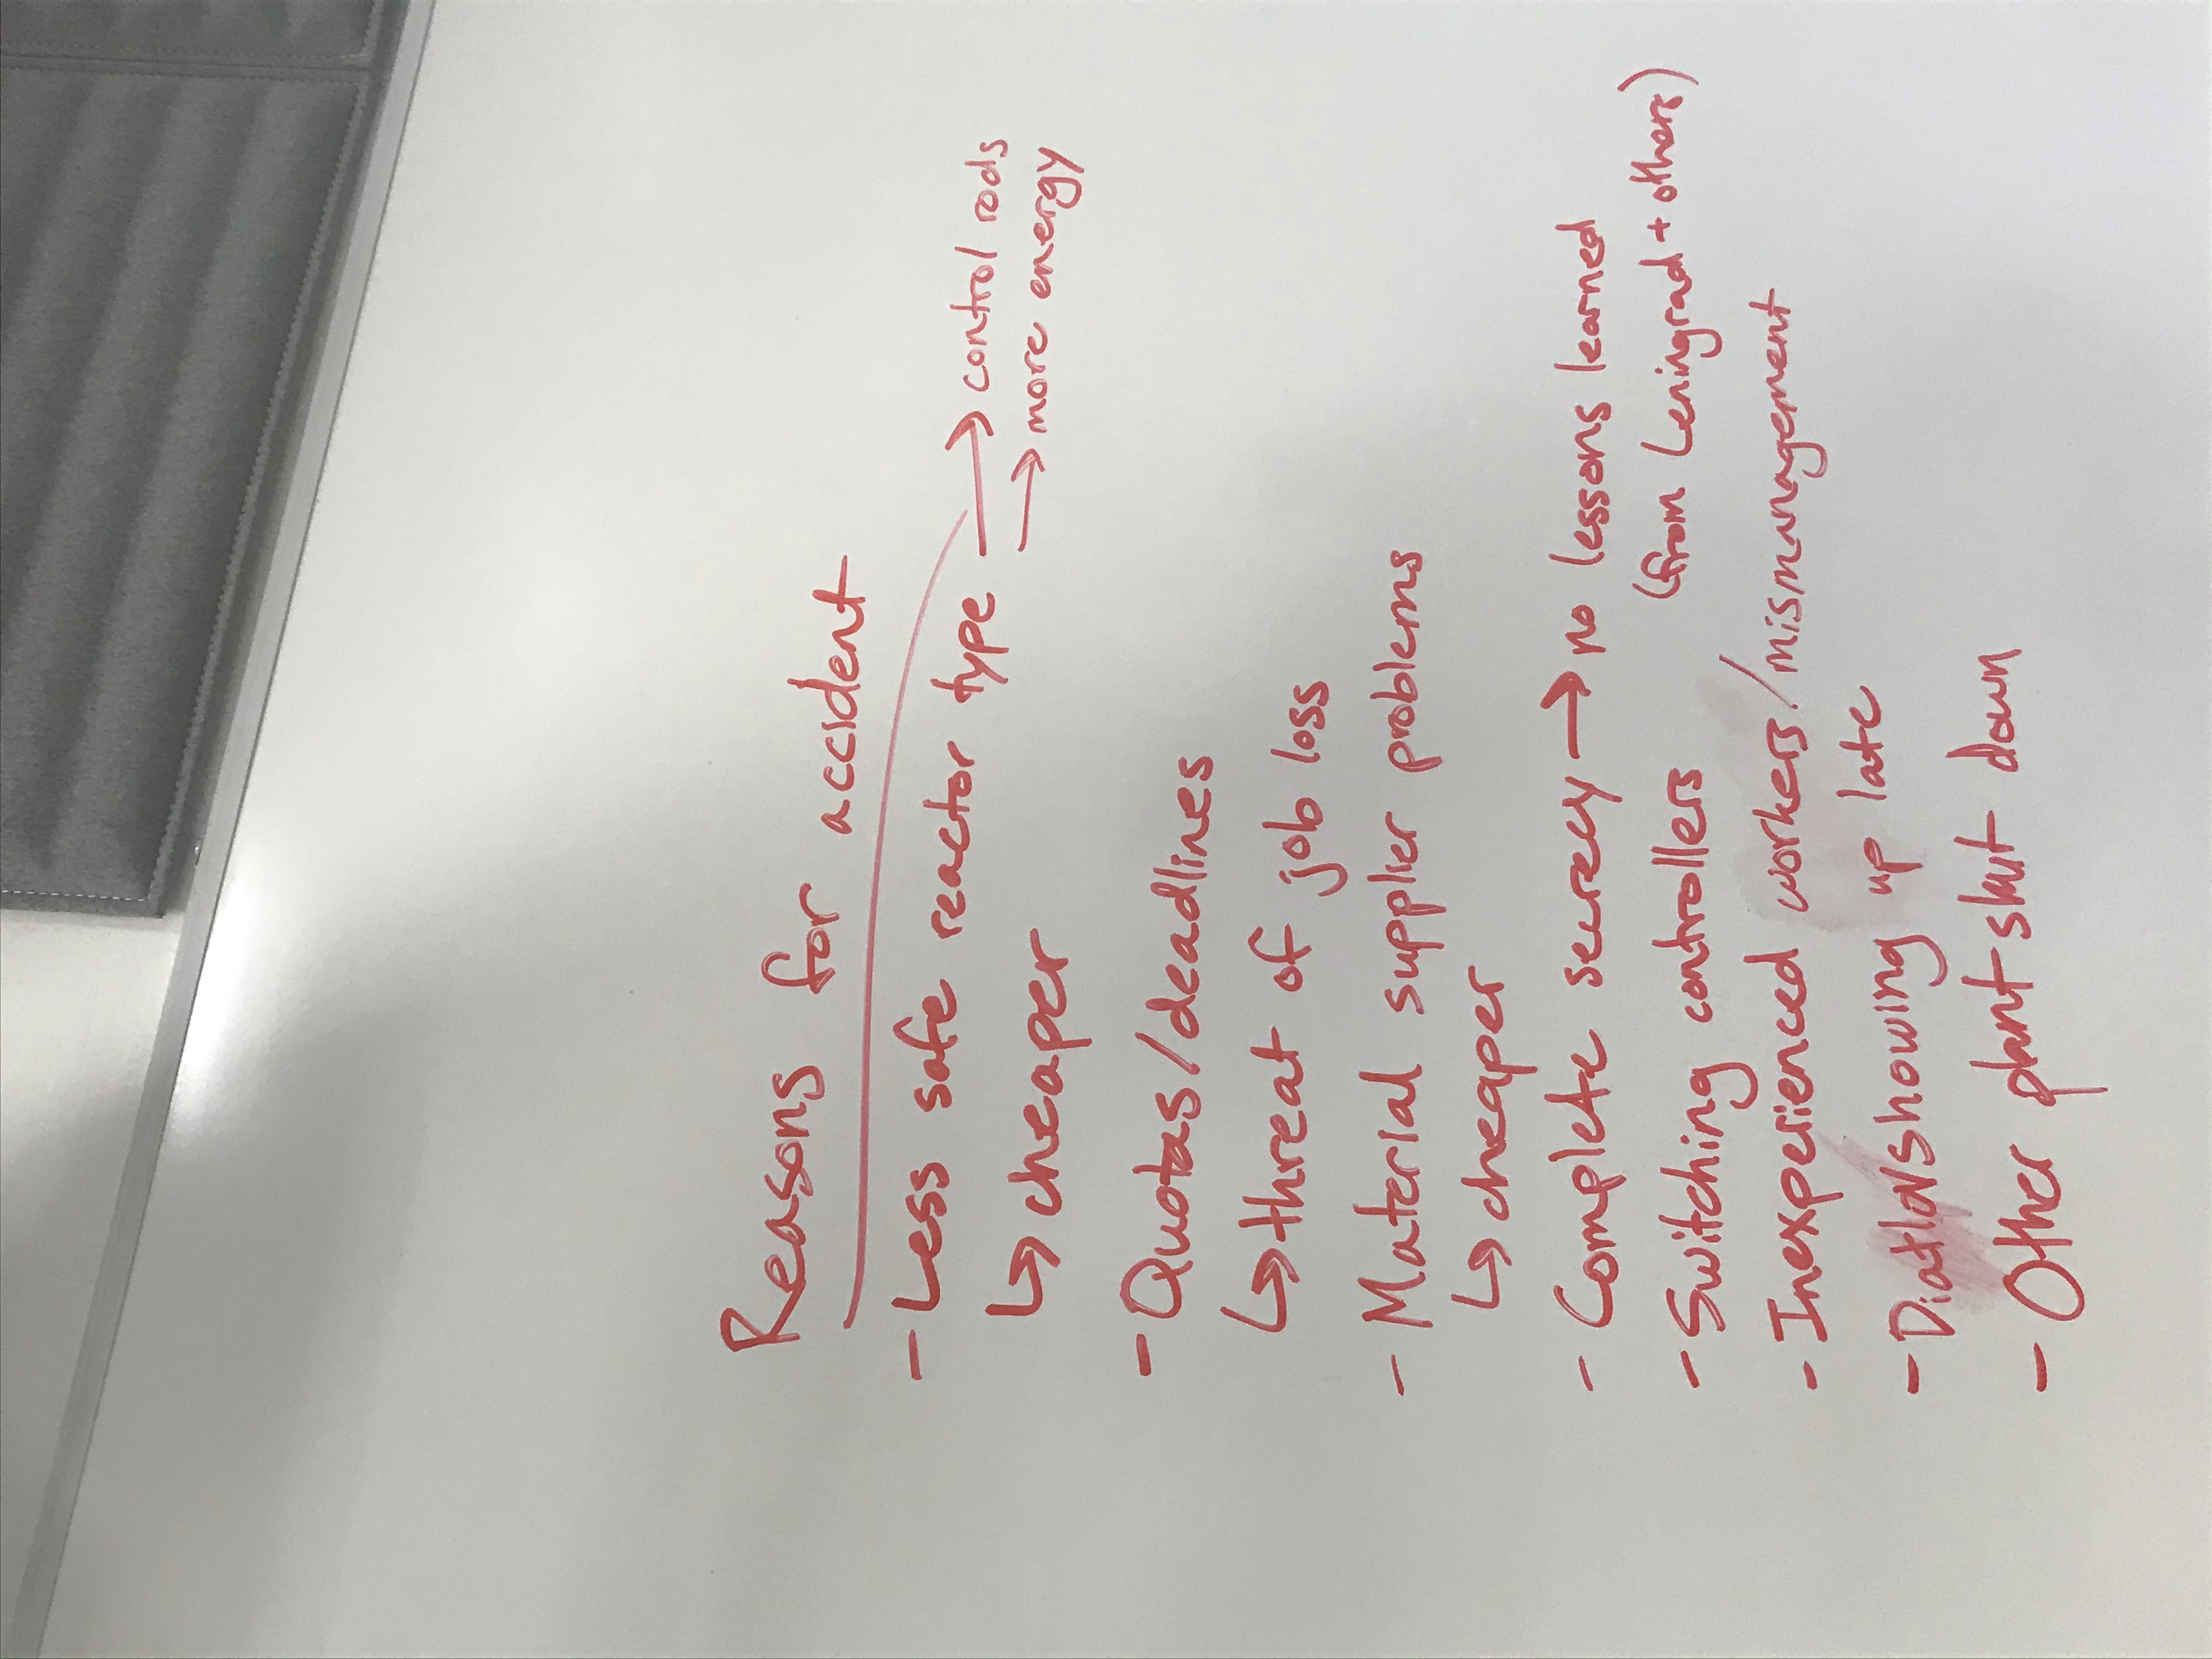 Reasons for accident
- Less safe reactor type → control rods
↳ cheaper → more energy
- Quotas/deadlines
↳ threat of job loss
- Material supplier problems
↳ cheaper
- Complete secrecy → no lessons learned
(from Leningrad + others)
- Switching controllers
- Inexperienced workers/mismanagement
- Diatlov showing up late
- Other plant shut down